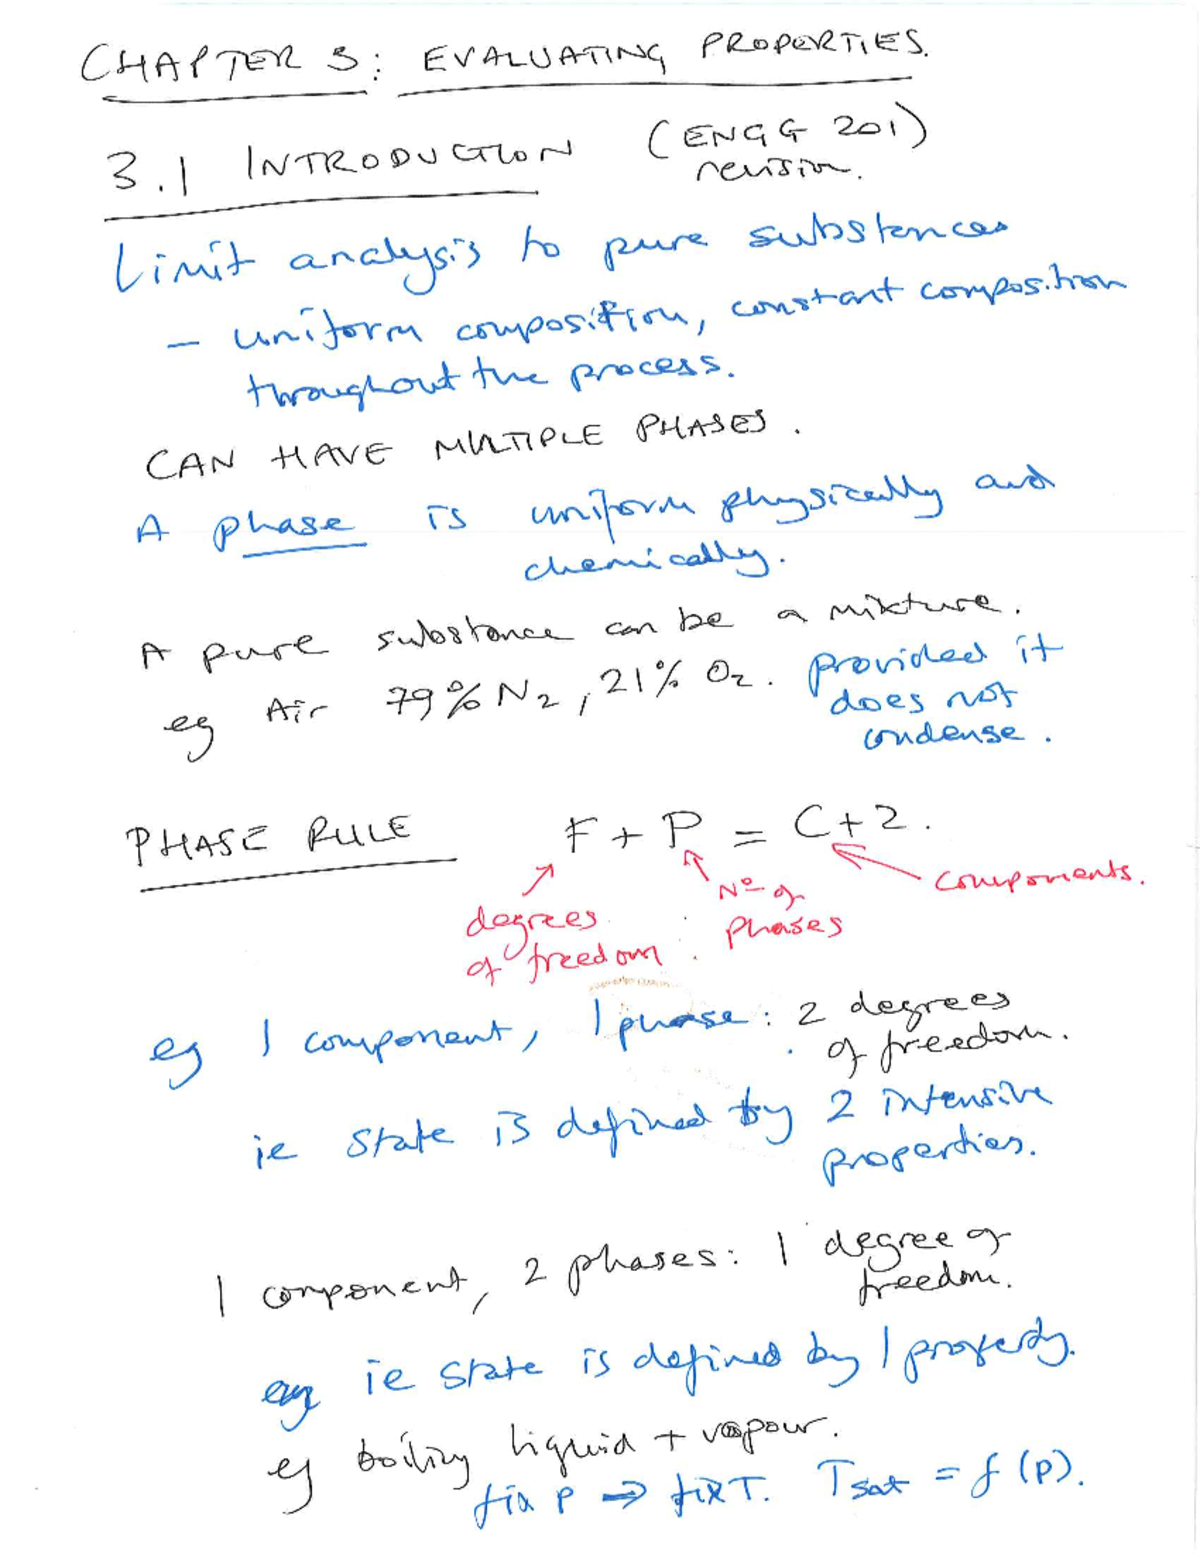 CHAPTER 3: EVALUATING PROPERTIES.
3.1 INTRODUCTION (ENGG 201)
revision.
Limit analysis to pure substances
- uniform composition, constant composition
throughout the process.
CAN HAVE MULTIPLE PHASES.
A phase is uniform physically and
chemically.
A pure substance can be a mixture.
eg Air 79% N2, 21% O2. provided it
does not
condense.
PHASE RULE F + P = C + 2.
degrees
of freedom
No of
phases
components.
eg 1 component, 1 phase: 2 degrees
of freedom.
ie state is defined by 2 intensive
properties.
1 component, 2 phases: 1 degree of
freedom.
ie state is defined by 1 property.
eg boiling liquid + vapour.
fix P → fix T. Tsat = f (p).